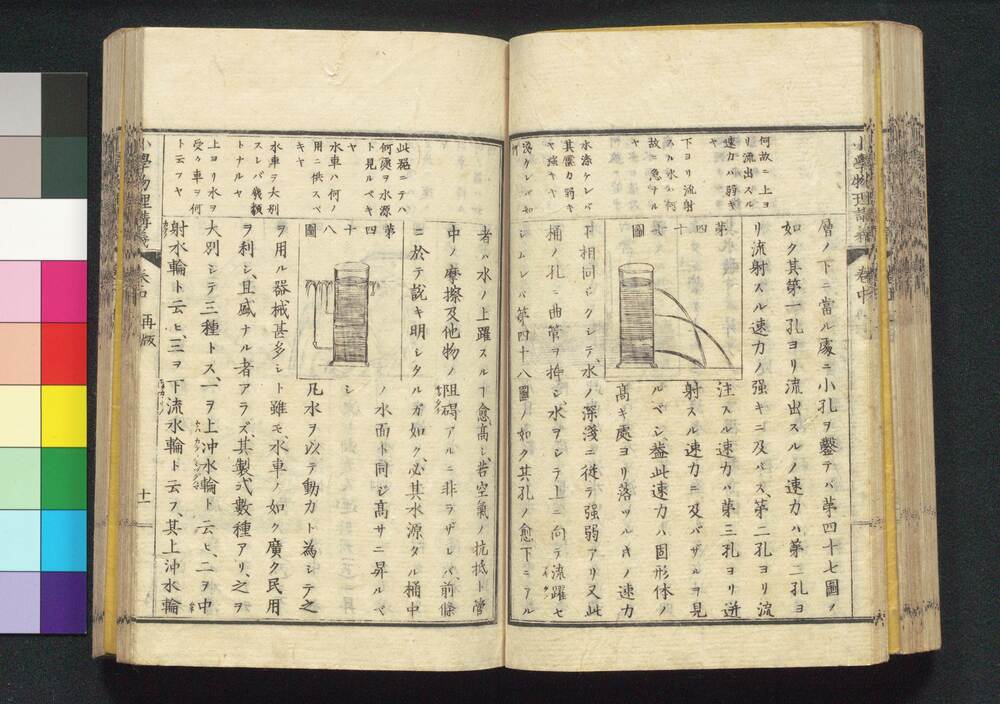 何故ニ上ヨ
リ流出スル
速力ハ弱キ
ヤ
下ヨリ流射
スル水ハ何
故ニ急ヲル
ヤ
水漆ケレバ
其震力弱キ
ヤ強キヤ
層ノ下ニ當ル處ニ小孔ヲ鑿テバ第四十七圖ノ
如ク其第一孔ヨリ流出スルノ速力ハ第二孔ヨ
リ流射スル速力ノ强キニ及バス、第二孔ヨリ流
注スル速力ハ第三孔ヨリ迸
射スル速力ニ及バザルヲ見
ルベシ、蓋此速力ハ固形体ノ
高キ處ヨリ落ツルキノ速力
第四十七圖
ト相同ジクシテ、水ノ深淺ニ從テ强弱アリ又此
桶ノ孔ニ曲管ヲ挿シ、水ヲシテ上ニ向テ流躍セ
シムレバ第四十八圖ノ如ク其孔ノ愈下ニアル
小學物理講義
卷中
此樞ニテハ
何處ヲ水源
ト見ルベキ
ヤ
水車ハ何ノ
用ニ供スベ
キヤ
水車ヲ大別
スレバ幾類
トナルヤ
上ヨリ水ヲ
受クル車ヲ何
ト云フヤ
者ハ水ノ上躍スルヿ愈高シ、若空氣ノ抗抵ト管
中ノ摩擦及他物ノ阻碍アルニ非ラザレバ、前條
ニ於テ說キ明シタルガ如ク、必其水源タル桶中
ノ水面ト同ジ高サニ昇ルベ
シ
凡水ヲ以テ動力ト為シテ之
第四十八圖
ヲ用ル器械甚多シト雖モ、水車ノ如ク廣ク民用
ヲ利シ、且盛ナル者アラズ、其製式數種アリ、之ヲ
大別シテ三種トス、一ヲ上冲水輪ト云ヒ、二ヲ中
射水輪ト云ヒ、三ヲ下流水輪ト云フ、其上冲水輪
小學物理講義
卷中
再版
十一